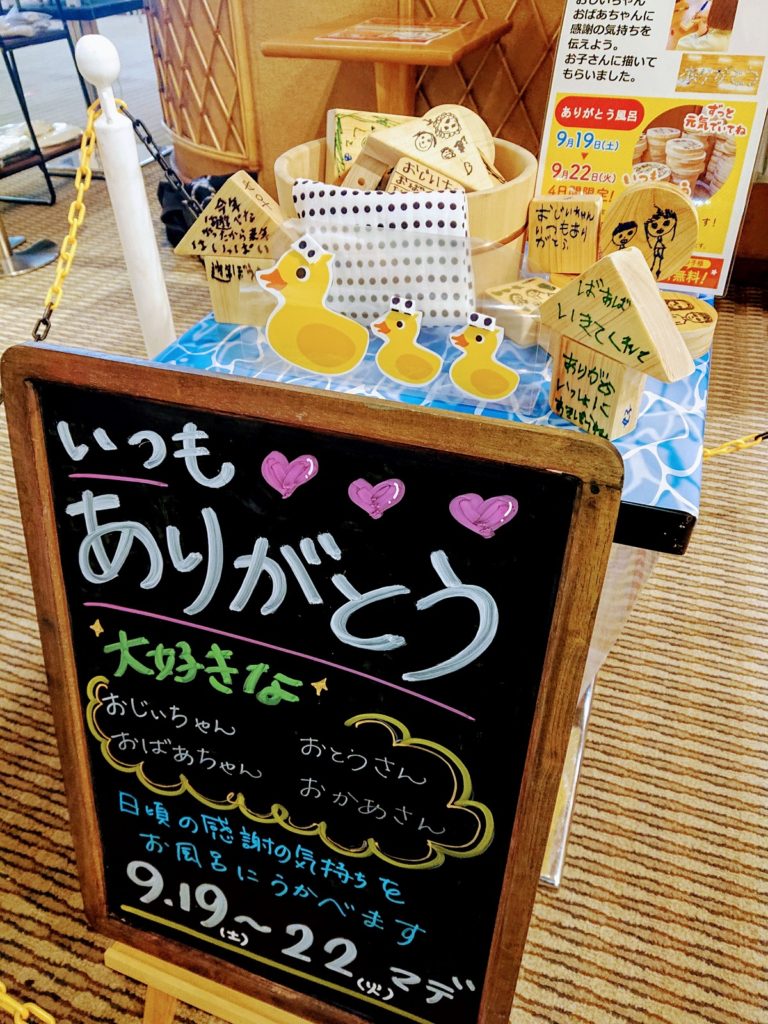 おじいちゃん
おばあちゃんに
感謝の気持ちを
伝えよう。
お子さんに描いて
もらいました。
ありがとう風呂
9月19日(土)
9月22日(火)
4日間限定!
ずっと
元気でいてね
無料!
おじいちゃん
いつもあり
がとう
ばあば
いきてくれて
ありがと
いつもありがとう
大好きな
おじぃちゃん
おばあちゃん
おとうさん
おかあさん
日頃の感謝の気持ちを
お風呂にうかべます
9.19(土)~22(火)マデ